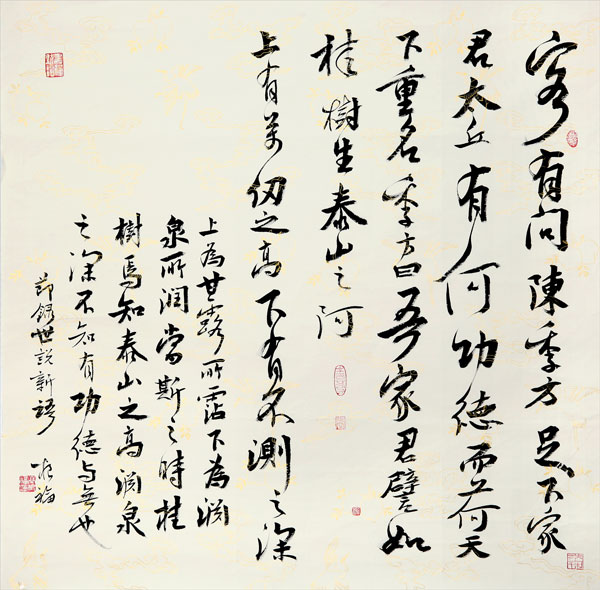 客有問陳季方足下家
君太丘有何功德而荷天
下重名季方曰吾家君譬如
桂樹生泰山之阿
上有萬仞之高下有不測之深
上為甘露所霑下為淵
泉所潤當斯之時桂
樹焉知泰山之高淵泉
之深不知有功德與無也
節錄世說新語